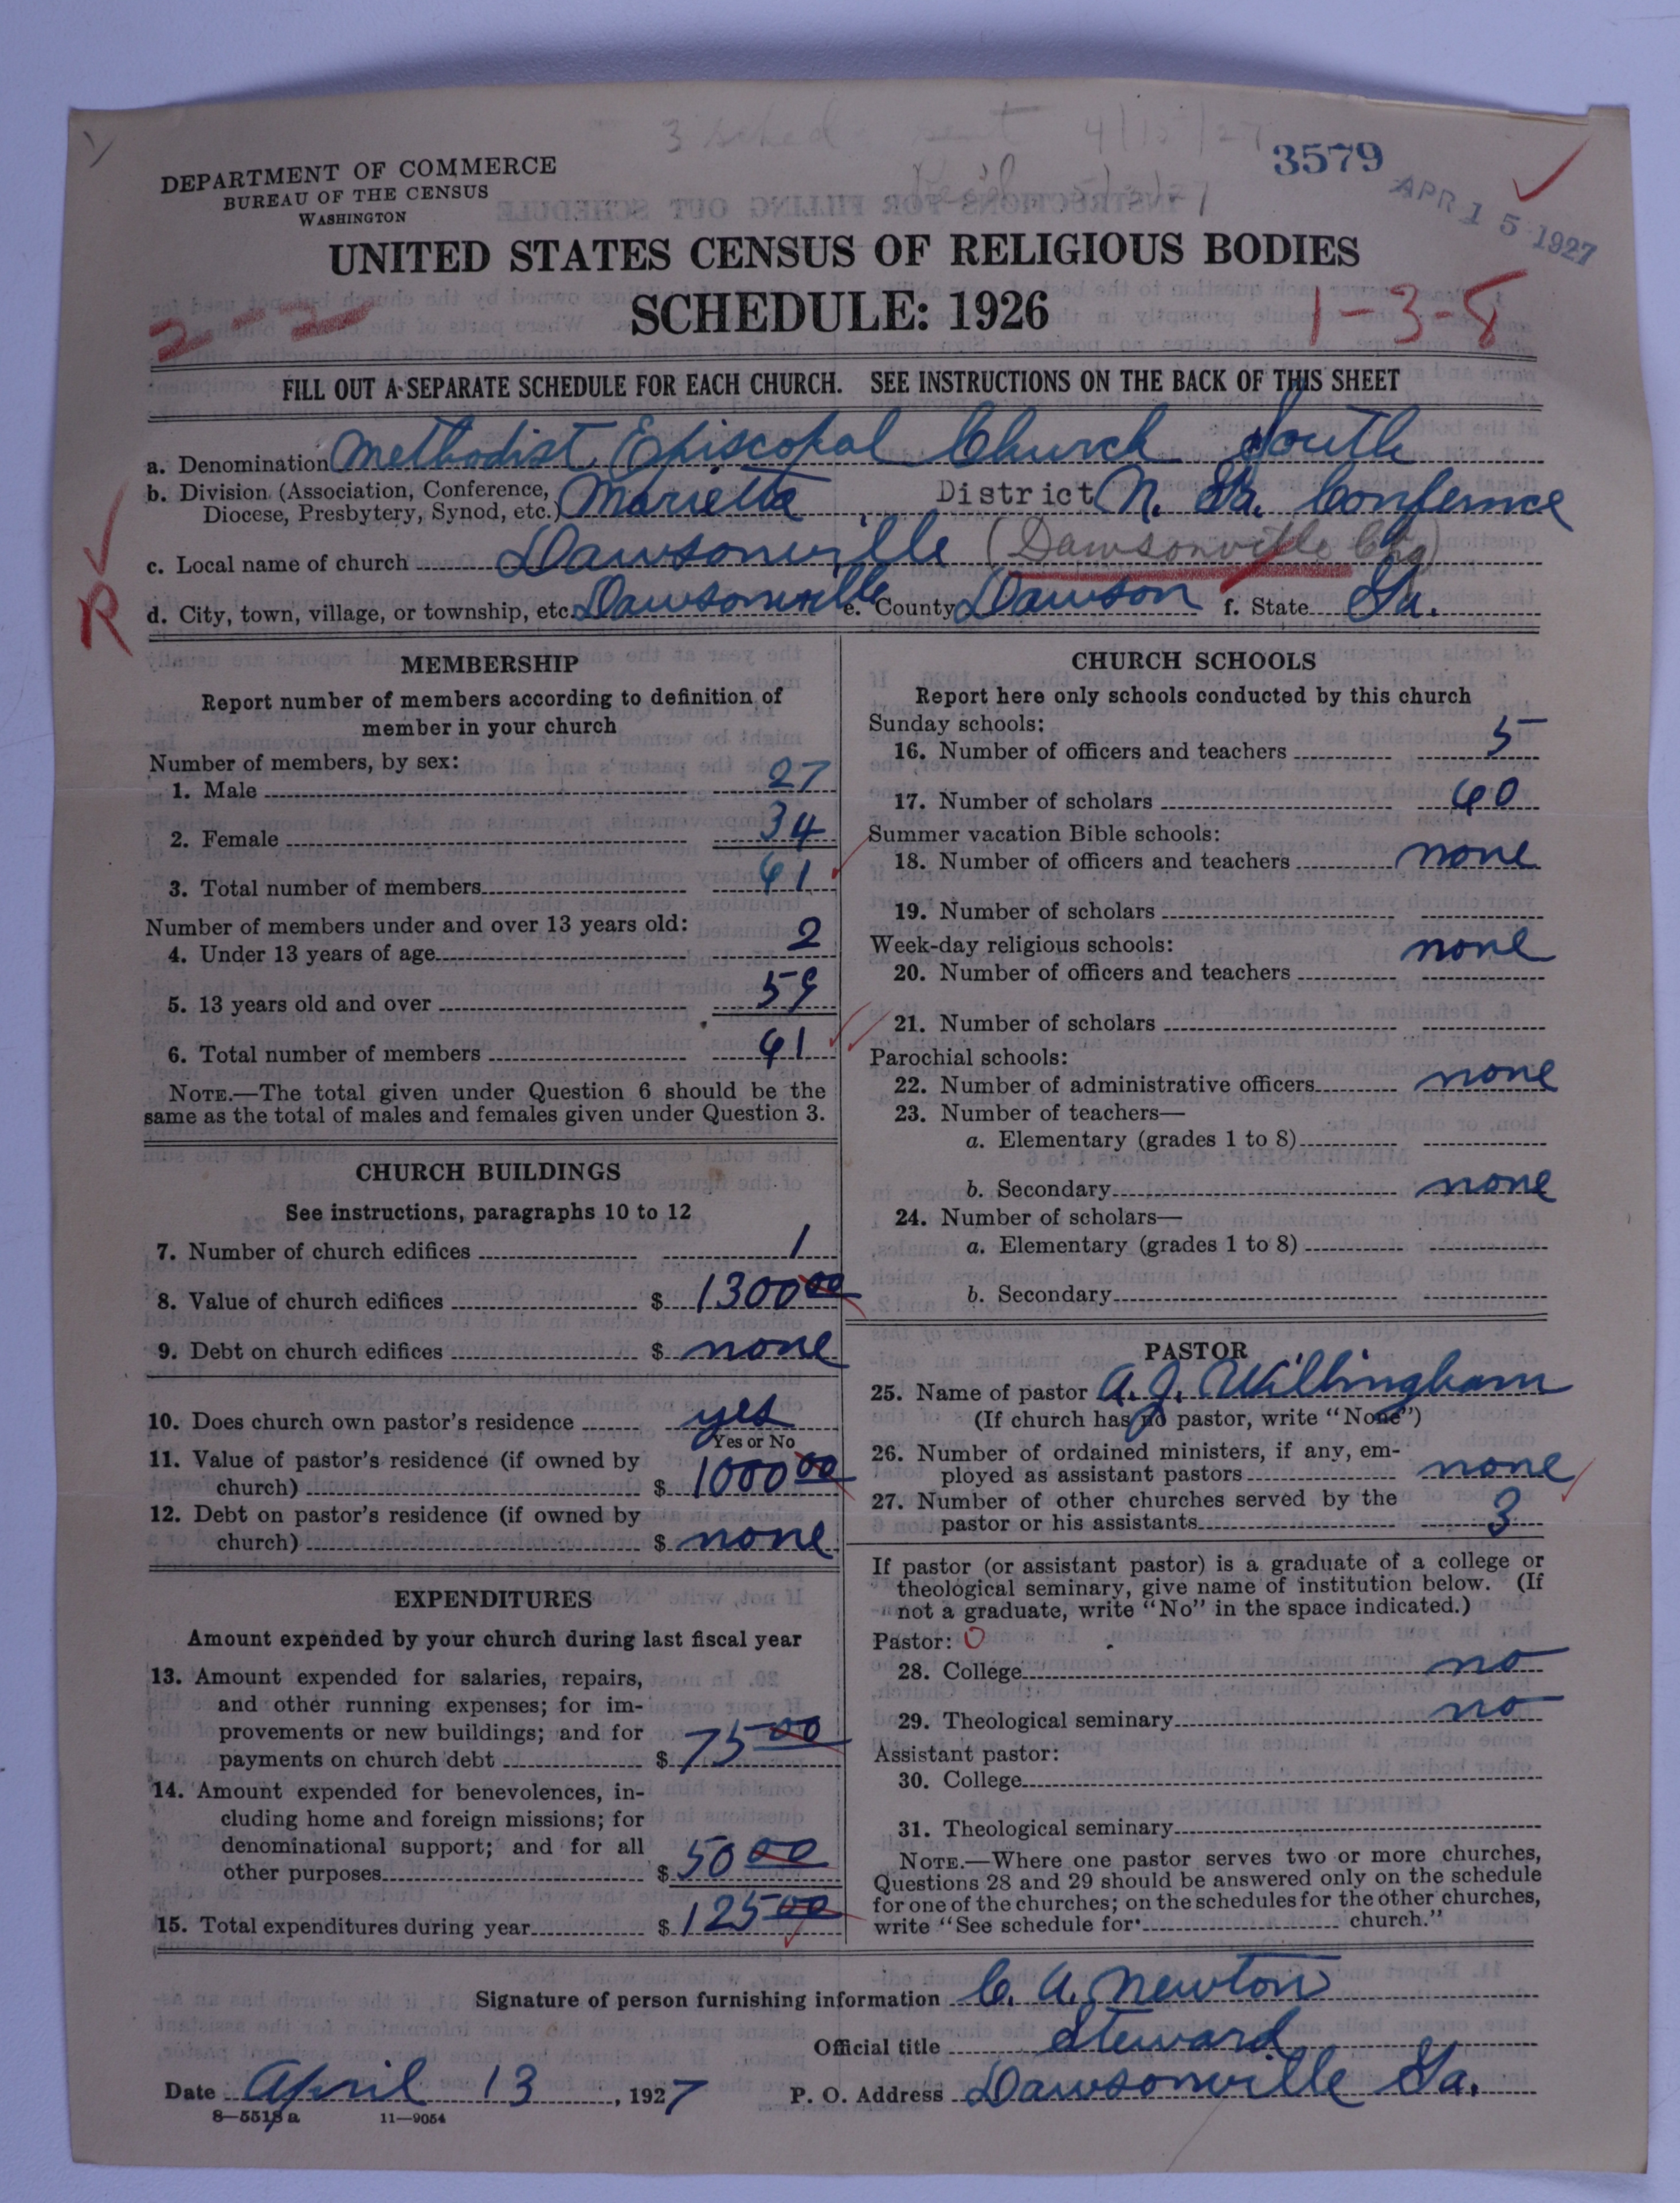 3 sched sent 4/15/27
3579
APR 15 1927
DEPARTMENT OF COMMERCE
BUREAU OF THE CENSUS
WASHINGTON
UNITED STATES CENSUS OF RELIGIOUS BODIES
SCHEDULE: 1926
2-2
1-3-8
FILL OUT A SEPARATE SCHEDULE FOR EACH CHURCH. SEE INSTRUCTIONS ON THE BACK OF THIS SHEET
a. Denomination Methodist Episcopal Church South
b. Division (Association, Conference, Diocese, Presbytery, Synod, etc.) Marietta District N. Ga. Confernce
c. Local name of church Dawsonville (Dawsonville Chg)
R
d. City, town, village, or township, etc. Dawsonville e. County Dawson f. State Ga.
MEMBERSHIP
Report number of members according to definition of
member in your church
Number of members, by sex:
1. Male 27
2. Female 34
3. Total number of members 61
Number of members under and over 13 years old:
4. Under 13 years of age 2
5. 13 years old and over 59
6. Total number of members 61
NOTE.—The total given under Question 6 should be the
same as the total of males and females given under Question 3.
CHURCH BUILDINGS
See instructions, paragraphs 10 to 12
7. Number of church edifices 1
8. Value of church edifices $ 1300 00
9. Debt on church edifices $ none
10. Does church own pastor's residence yes
Yes or No
11. Value of pastor's residence (if owned by
church) $ 1000 00
12. Debt on pastor's residence (if owned by
church) $ none
EXPENDITURES
Amount expended by your church during last fiscal year
13. Amount expended for salaries, repairs,
and other running expenses; for im-
provements or new buildings; and for
payments on church debt $ 75 00
14. Amount expended for benevolences, in-
cluding home and foreign missions; for
denominational support; and for all
other purposes $ 50 00
15. Total expenditures during year $ 125 00
CHURCH SCHOOLS
Report here only schools conducted by this church
Sunday schools:
16. Number of officers and teachers 5
17. Number of scholars 60
Summer vacation Bible schools:
18. Number of officers and teachers none
19. Number of scholars
Week-day religious schools: none
20. Number of officers and teachers
21. Number of scholars
Parochial schools:
22. Number of administrative officers none
23. Number of teachers—
a. Elementary (grades 1 to 8)
b. Secondary none
24. Number of scholars—
a. Elementary (grades 1 to 8)
b. Secondary
PASTOR
25. Name of pastor A. J. Willingham
(If church has no pastor, write "None")
26. Number of ordained ministers, if any, em-
ployed as assistant pastors none
27. Number of other churches served by the
pastor or his assistants 3
If pastor (or assistant pastor) is a graduate of a college or
theological seminary, give name of institution below. (If
not a graduate, write "No" in the space indicated.)
Pastor: 0
28. College no
29. Theological seminary no
Assistant pastor:
30. College
31. Theological seminary
NOTE.—Where one pastor serves two or more churches,
Questions 28 and 29 should be answered only on the schedule
for one of the churches; on the schedules for the other churches,
write "See schedule for church."
Signature of person furnishing information C. A. Newton
Official title steward
Date April 13, 1927 P. O. Address Dawsonville Ga.
8—5518 a 11—9054